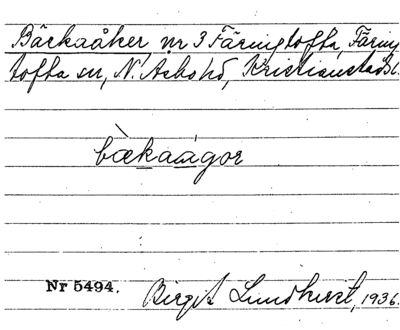 Bäckaåker, nr 3 Färingtofta, Färing
tofta sn, N. Åsbo hd, Kristianstads l.
bæ̀kaágor
Nr 5494.
Birgit Lundhvist, 1936.